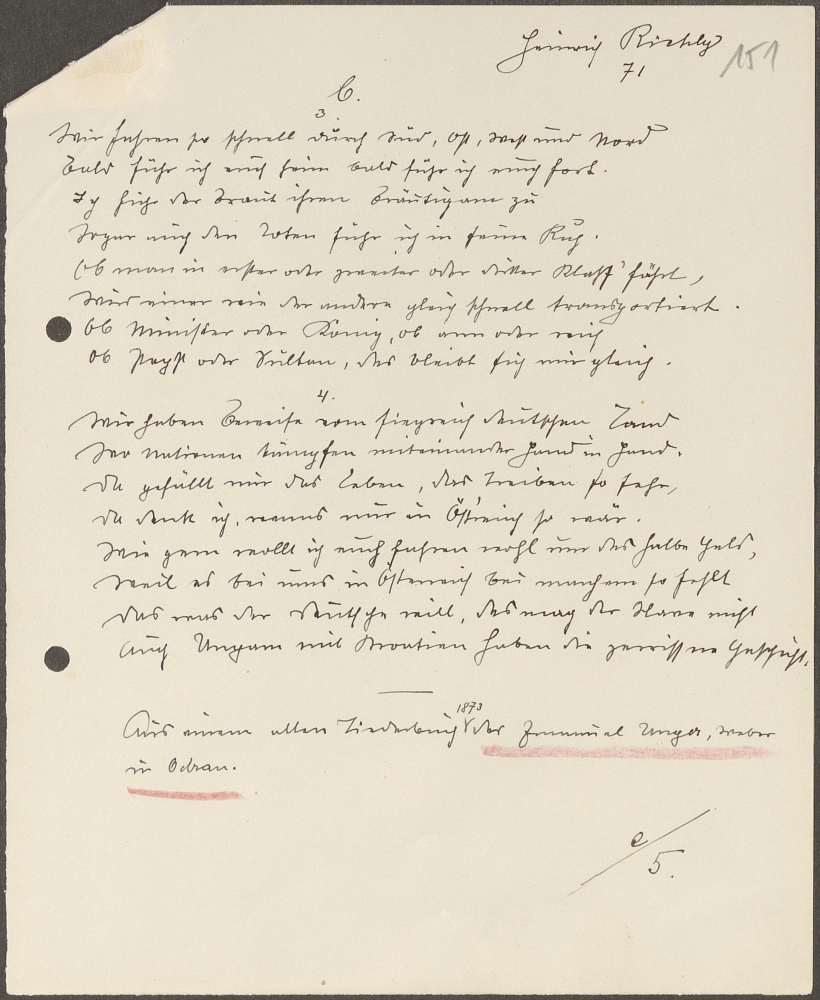 Heinrich Richly
151
71
6.
3.
Wir fahren so schnell durch Süd, Ost, West und Nord
bald führ ich euch heim bald führ ich euch fort.
Ich führ der Braut ihren Bräutigam zu
Sogar auch den Toten führ ich in seine Ruh.
Ob man in erster oder zweiter oder dritter Klass' fährt,
Wird einer wie der andere gleich schnell transportiert.
Ob Minister oder König, ob arm oder reich
Ob Papst oder Sultan, das bleibt sich mir gleich.
4.
Wir haben Beweise vom siegreich deutschen Land
Wo Nationen kämpfen miteinander Hand in Hand.
Da gefällt mir das Leben, das Treiben so sehr,
da denk ich, wenns nur in Östreich so wär.
Wie gern wollt ich euch fahren wohl um das halbe Geld,
Weil es bei uns in Österreich bei manchem so fehlt
das was der Deutsche will, das mag der Slave nicht
Auch Ungarn mit Kroatien haben die zerrissne Geschicht.
Aus einem alten Liederbuch 1873 des Emanuel Unger, Weber
in Odrau.
e/5.